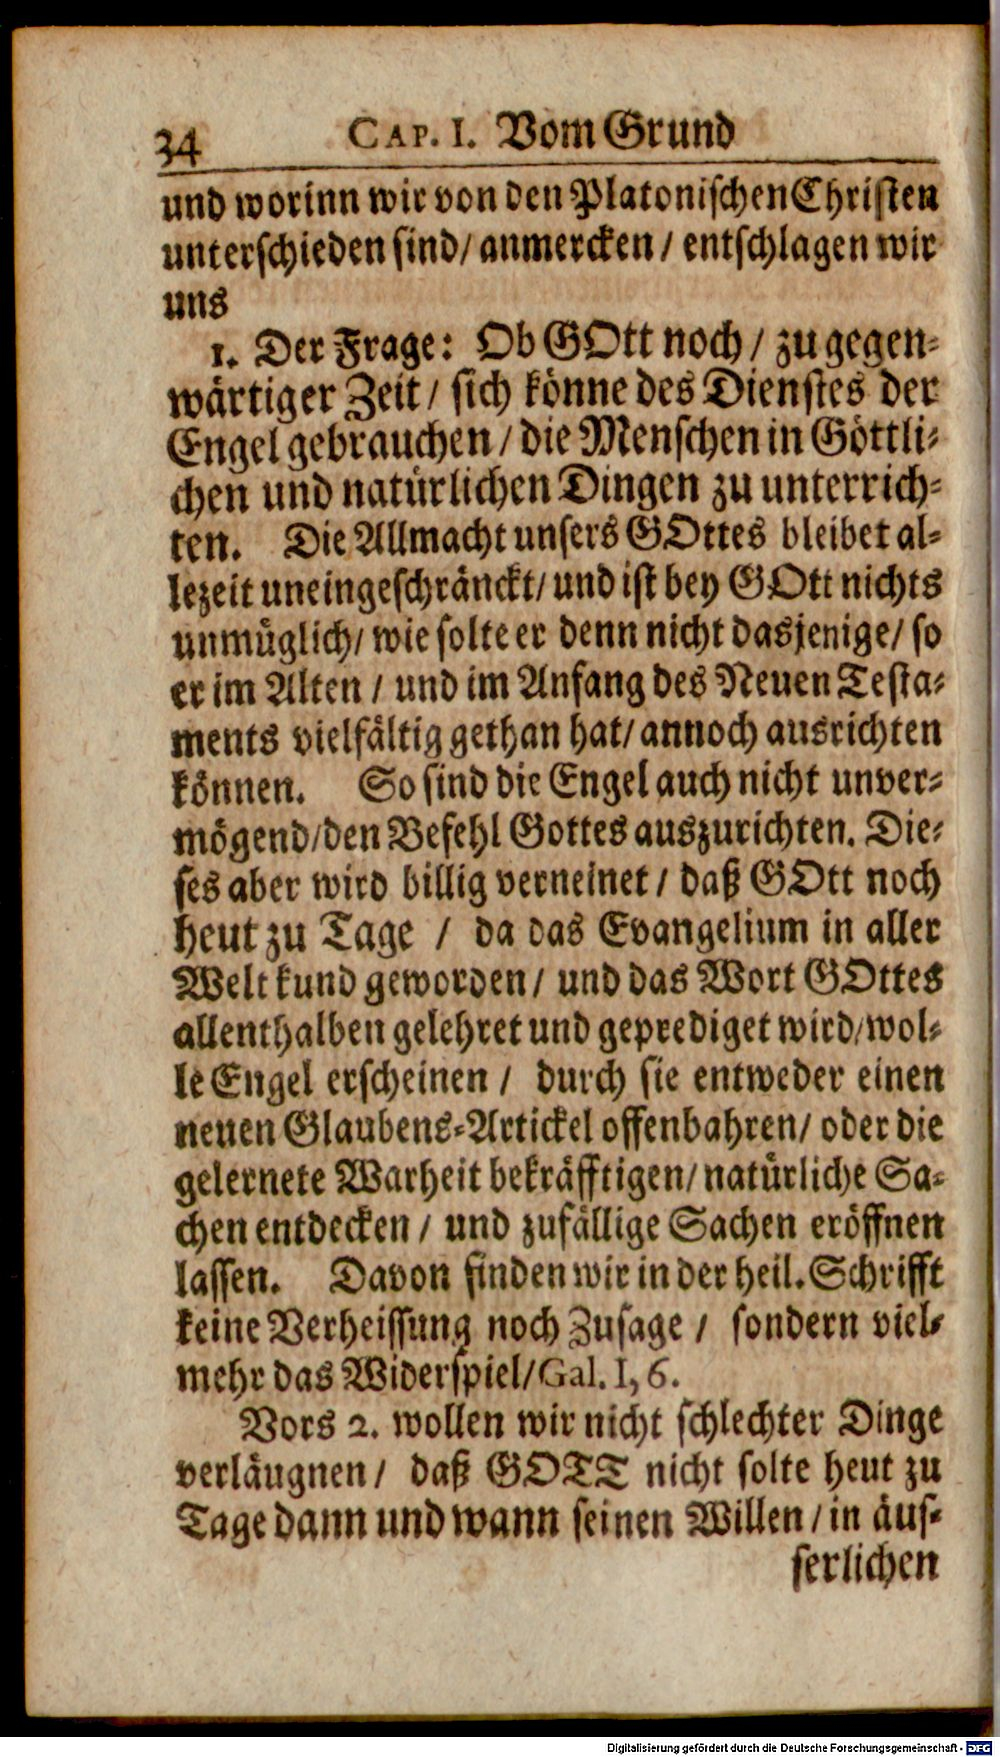 34 CAP. I. Vom Grund
und worinn wir von den Platonischen Christen
unterschieden sind/ anmercken / entschlagen wir
uns
1. Der Frage: Ob GOtt noch / zu gegen-
wärtiger Zeit / sich könne des Dienstes der
Engel gebrauchen / die Menschen in Göttli-
chen und natürlichen Dingen zu unterrich-
ten. Die Allmacht unsers GOttes bleibet al-
lezeit uneingeschränckt/ und ist bey GOtt nichts
unmüglich/ wie solte er denn nicht dasjenige/ so
er im Alten / und im Anfang des Neuen Testa-
ments vielfältig gethan hat/ annoch ausrichten
können. So sind die Engel auch nicht unver-
mögend/den Befehl Gottes auszurichten. Die-
ses aber wird billig verneinet / daß GOtt noch
heut zu Tage / da das Evangelium in aller
Welt kund geworden / und das Wort GOttes
allenthalben gelehret und geprediget wird/wol-
le Engel erscheinen / durch sie entweder einen
neuen Glaubens-Artickel offenbahren/ oder die
gelernete Warheit bekräfftigen/ natürliche Sa-
chen entdecken / und zufällige Sachen eröffnen
lassen. Davon finden wir in der heil. Schrifft
keine Verheissung noch Zusage / sondern viel-
mehr das Widerspiel/Gal. I, 6.
Vors 2. wollen wir nicht schlechter Dinge
verläugnen / daß GOTT nicht solte heut zu
Tage dann und wann seinen Willen / in äus-
serlichen
Digitalisierung gefördert durch die Deutsche Forschungsgemeinschaft - DFG